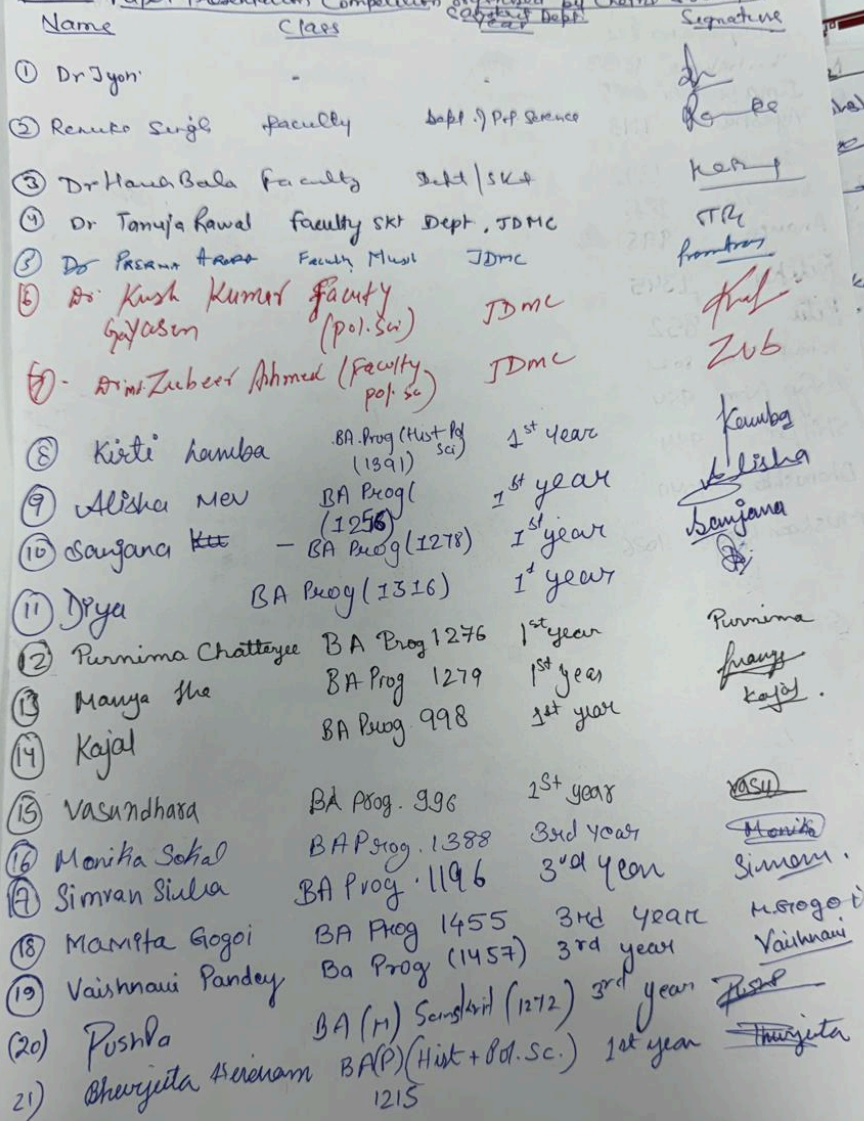 Paper Presentation Competition organised by
Name Class Year Dept. Signature
① Dr Jyoti - -
② Renuka Singh faculty Dept. of Pol Science
③ Dr Hana Bala Faculty Dept/Skt
④ Dr Tanuja Rawal faculty Skt Dept, JDMC
⑤ Dr PRERNA ARORA Faculty JDMC
⑥ Dr. Kush Kumar faculty JDMC
Gayasen (pol. Sci)
⑦ - Zubeer Ahmed (Faculty JDMC Zub
pol. Sc)
⑧ Kirti Lamba BA. Prog (Hist Pol Sci) 1st Year
(1391)
⑨ Alisha Meu BA Prog( 1st year Alisha
(1256)
⑩ Sanjana - BA Prog (1278) 1st year Sanjana
⑪ Diya BA Prog (1316) 1st year
⑫ Purnima Chatterjee BA Prog 1276 1st year Purnima
⑬ Manya Jha BA Prog 1279 1st year
⑭ Kajal BA Prog 998 1st year Kajal.
⑮ Vasundhara BA Prog. 996 1st year Vasu
⑯ Monika Sokal BA Prog. 1388 3rd Year Monika
⑰ Simran Sinha BA Prog. 1196 3rd year Simran.
⑱ Mamta Gogoi BA Prog 1455 3rd year M.Gogoi
⑲ Vaishnavi Pandey Ba Prog (1457) 3rd year Vaishnavi
(20) PushPa BA (H) Sanskrit (1272) 3rd year
21) BA(P) (Hist + Pol. Sc.) 1st year
1215